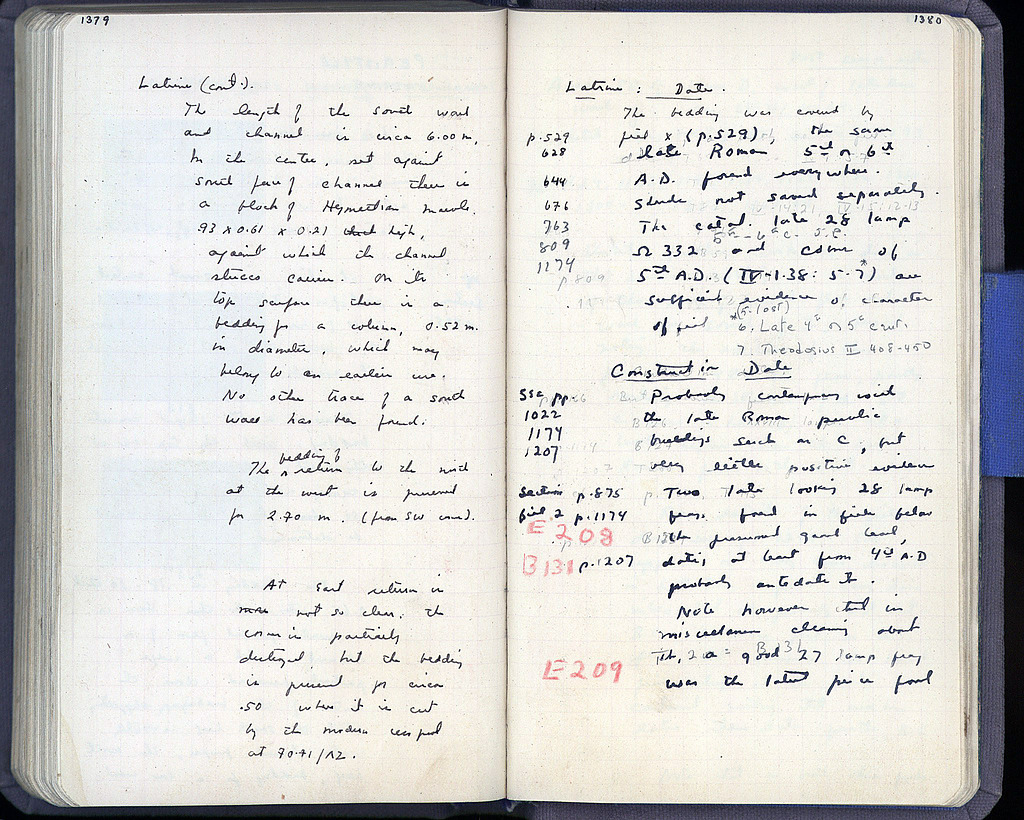 1379
Latrine (cont.).
The length of the south wall
and channel is circa 6.00 m.
In the center, set against
south face of channel there is
a block of Hymettian marble
.93 x 0.61 x 0.21 high,
against which the channel
stucco carries. On its
top surface there is a
bedding for a column, 0.52 m.
in diameter, which may
belong to an earlier use.
No other trace of a south
wall has been found.
bedding of
The return to the north
at the west is preserved
for 2.70 m. (from SW corner).
At East return is
not so clear. The
corner is partially
destroyed but the bedding
is present for circa
.50 where it is cut
by the modern cesspool
at 70-71/ΛΖ.
1380
Latrine : Date.
The bedding was covered by
p.529 fill x (p.529), the same
628 late Roman 5th or 6th
644 A.D. found everywhere.
676 Sherds not saved separately.
763 The catal. late 28 lamp
809 Ω 332 and coins of
1174 5th A.D. (IV-1.38: 5-7*) are
sufficient evidence of character
of fill
*(5. lost)
6. Late 4c or 5c cent.
7. Theodosius II 408-450
Construction Date
See pp. Probably contemporary with
1022 the late Roman public
1174 buildings such as C, but
1207 very little positive evidence
Section p.875 Two late looking 28 lamp
fill 2 p.1174 frags. found in fills below
E 208 the presumed ground level,
B131 p.1207 dating at least from 4th A.D
probably antedate it.
Note however that in
miscellaneous cleaning about
B 131
E 209 good 27 lamp frag
was the latest piece found